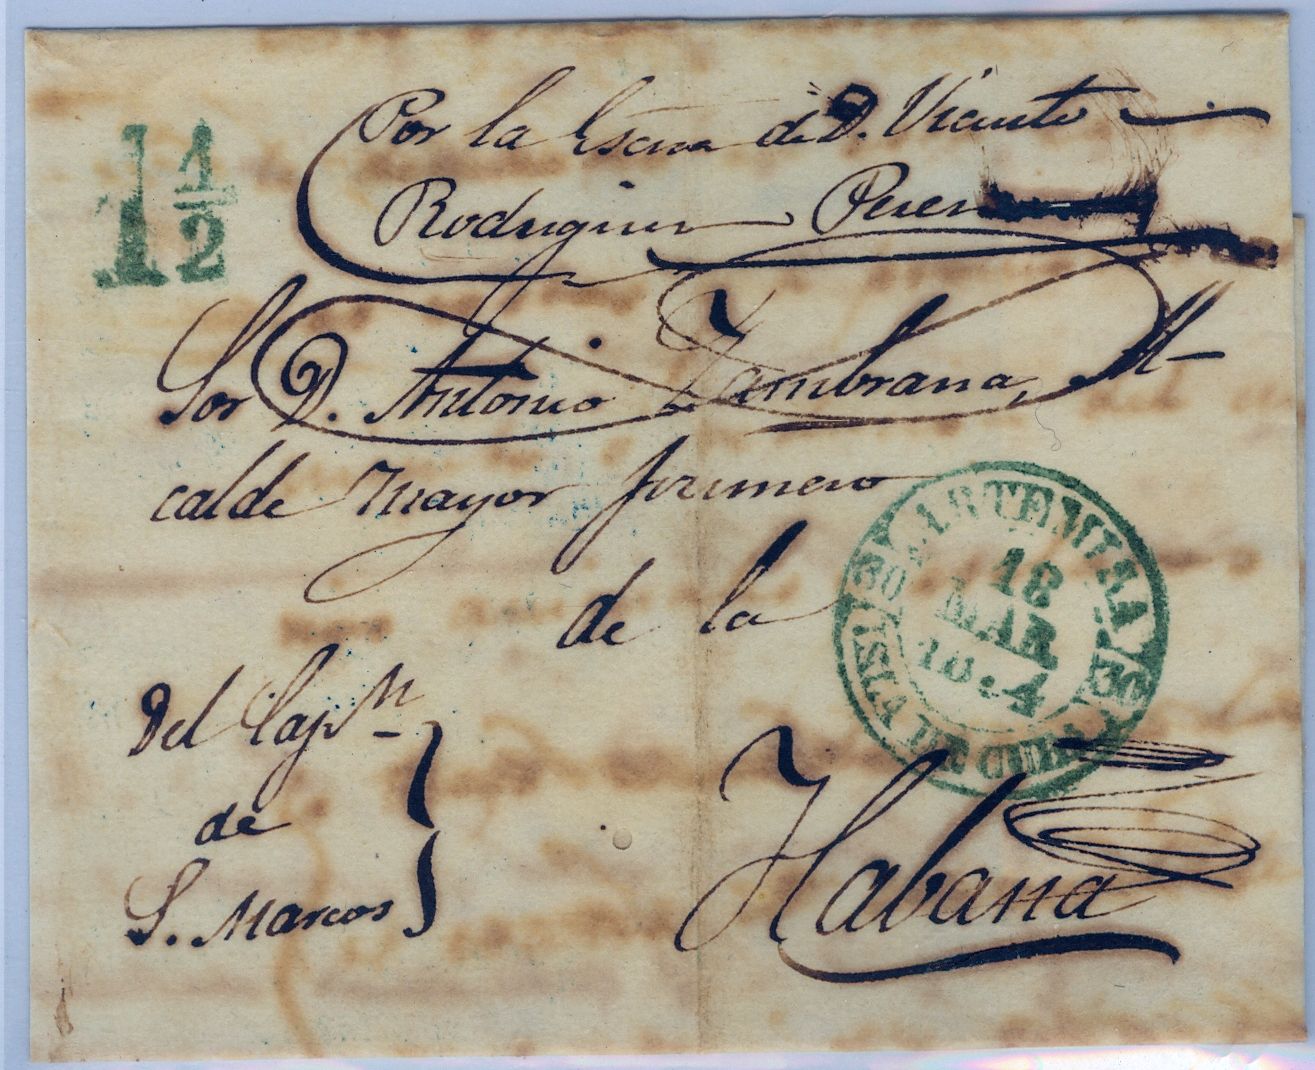 Por la Escna de D. Vicente
Rodriguez Perez
1 1/2
Sor D. Antonio Zambrana, Al-
calde mayor primero
de la
Habana
Del Capn
de
S. Marcos
ARTEMISA
30 30
18
MAR
18.4
ISLA DE CUBA